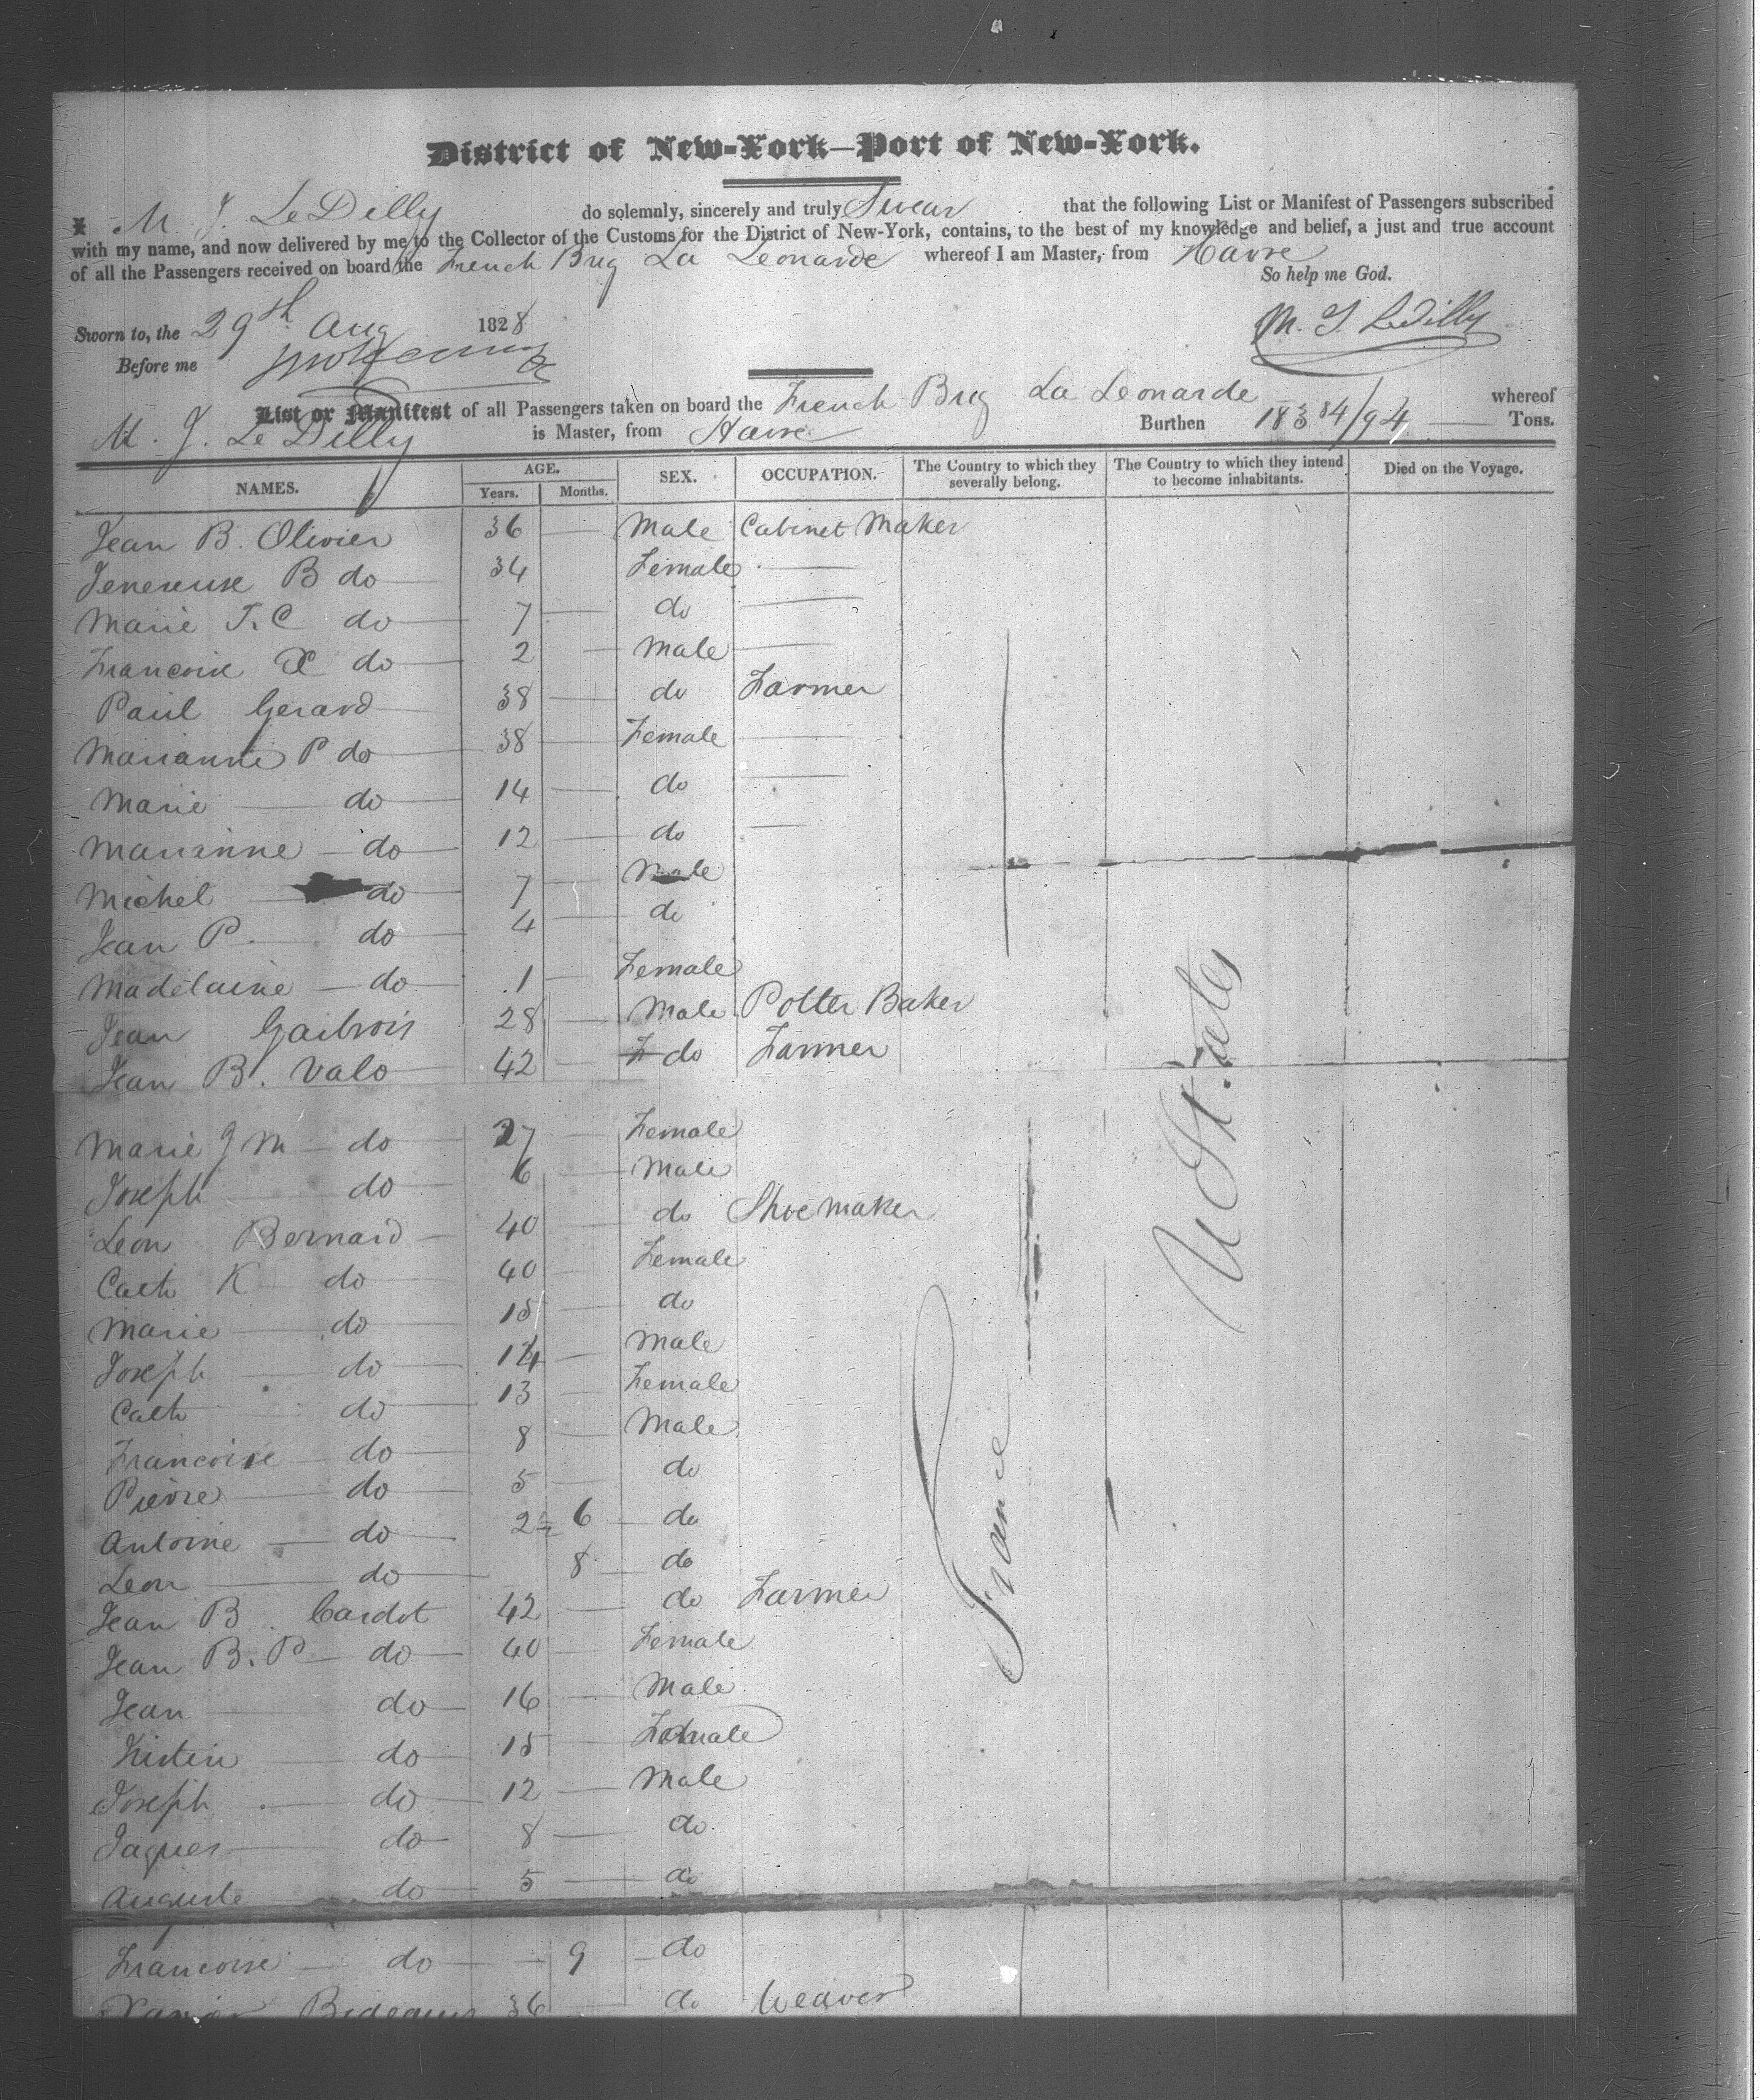 District of New-York—Port of New-York.
I M. J. LeDilly do solemnly, sincerely and truly Swear that the following List or Manifest of Passengers subscribed
with my name, and now delivered by me to the Collector of the Customs for the District of New-York, contains, to the best of my knowledge and belief, a just and true account
of all the Passengers received on board the French Brig La Leonarde whereof I am Master, from Havre
So help me God.
Sworn to, the 29th Aug 1828
M. J. LeDilly
Before me
List or Manifest of all Passengers taken on board the French Brig La Leonarde whereof
M. J. LeDilly is Master, from Havre Burthen 183 84/94 Tons.
NAMES. AGE. Years. Months. SEX. OCCUPATION. The Country to which they severally belong. The Country to which they intend to become inhabitants. Died on the Voyage.
Jean B. Olivier 36 Male Cabinet Maker
B do 34 Female
Marie T. C do 7 do
Francoise X do 2 Male
Paul Gerard 38 do Farmer
Marianne P do 38 Female
Marie do 14 do
Marianne do 12 do
Michel do 7 Male
Jean P. do 4 do
Madelaine do 1 Female
Jean Gaibrois 28 Male Potter Baker
Jean B. Valo 42 do Farmer
Marie J M do 27 Female
Joseph do 6 Male
Leon Bernard 40 do Shoe maker
Cath K do 40 Female
Marie do 15 do
Joseph do 14 Male
Cath do 13 Female
Francoise do 8 Male
Pierre do 5 do
Antoine do 2 6 do
Leon do 8 do
Jean B. Cardot 42 do Farmer
Jean B. P do 40 Female
Jean do 16 Male
do 15 Female
Joseph do 12 Male
Jaques do 8 do
Auguste do 5 do
Francoise do 9 do
36 do Weaver
France
U States